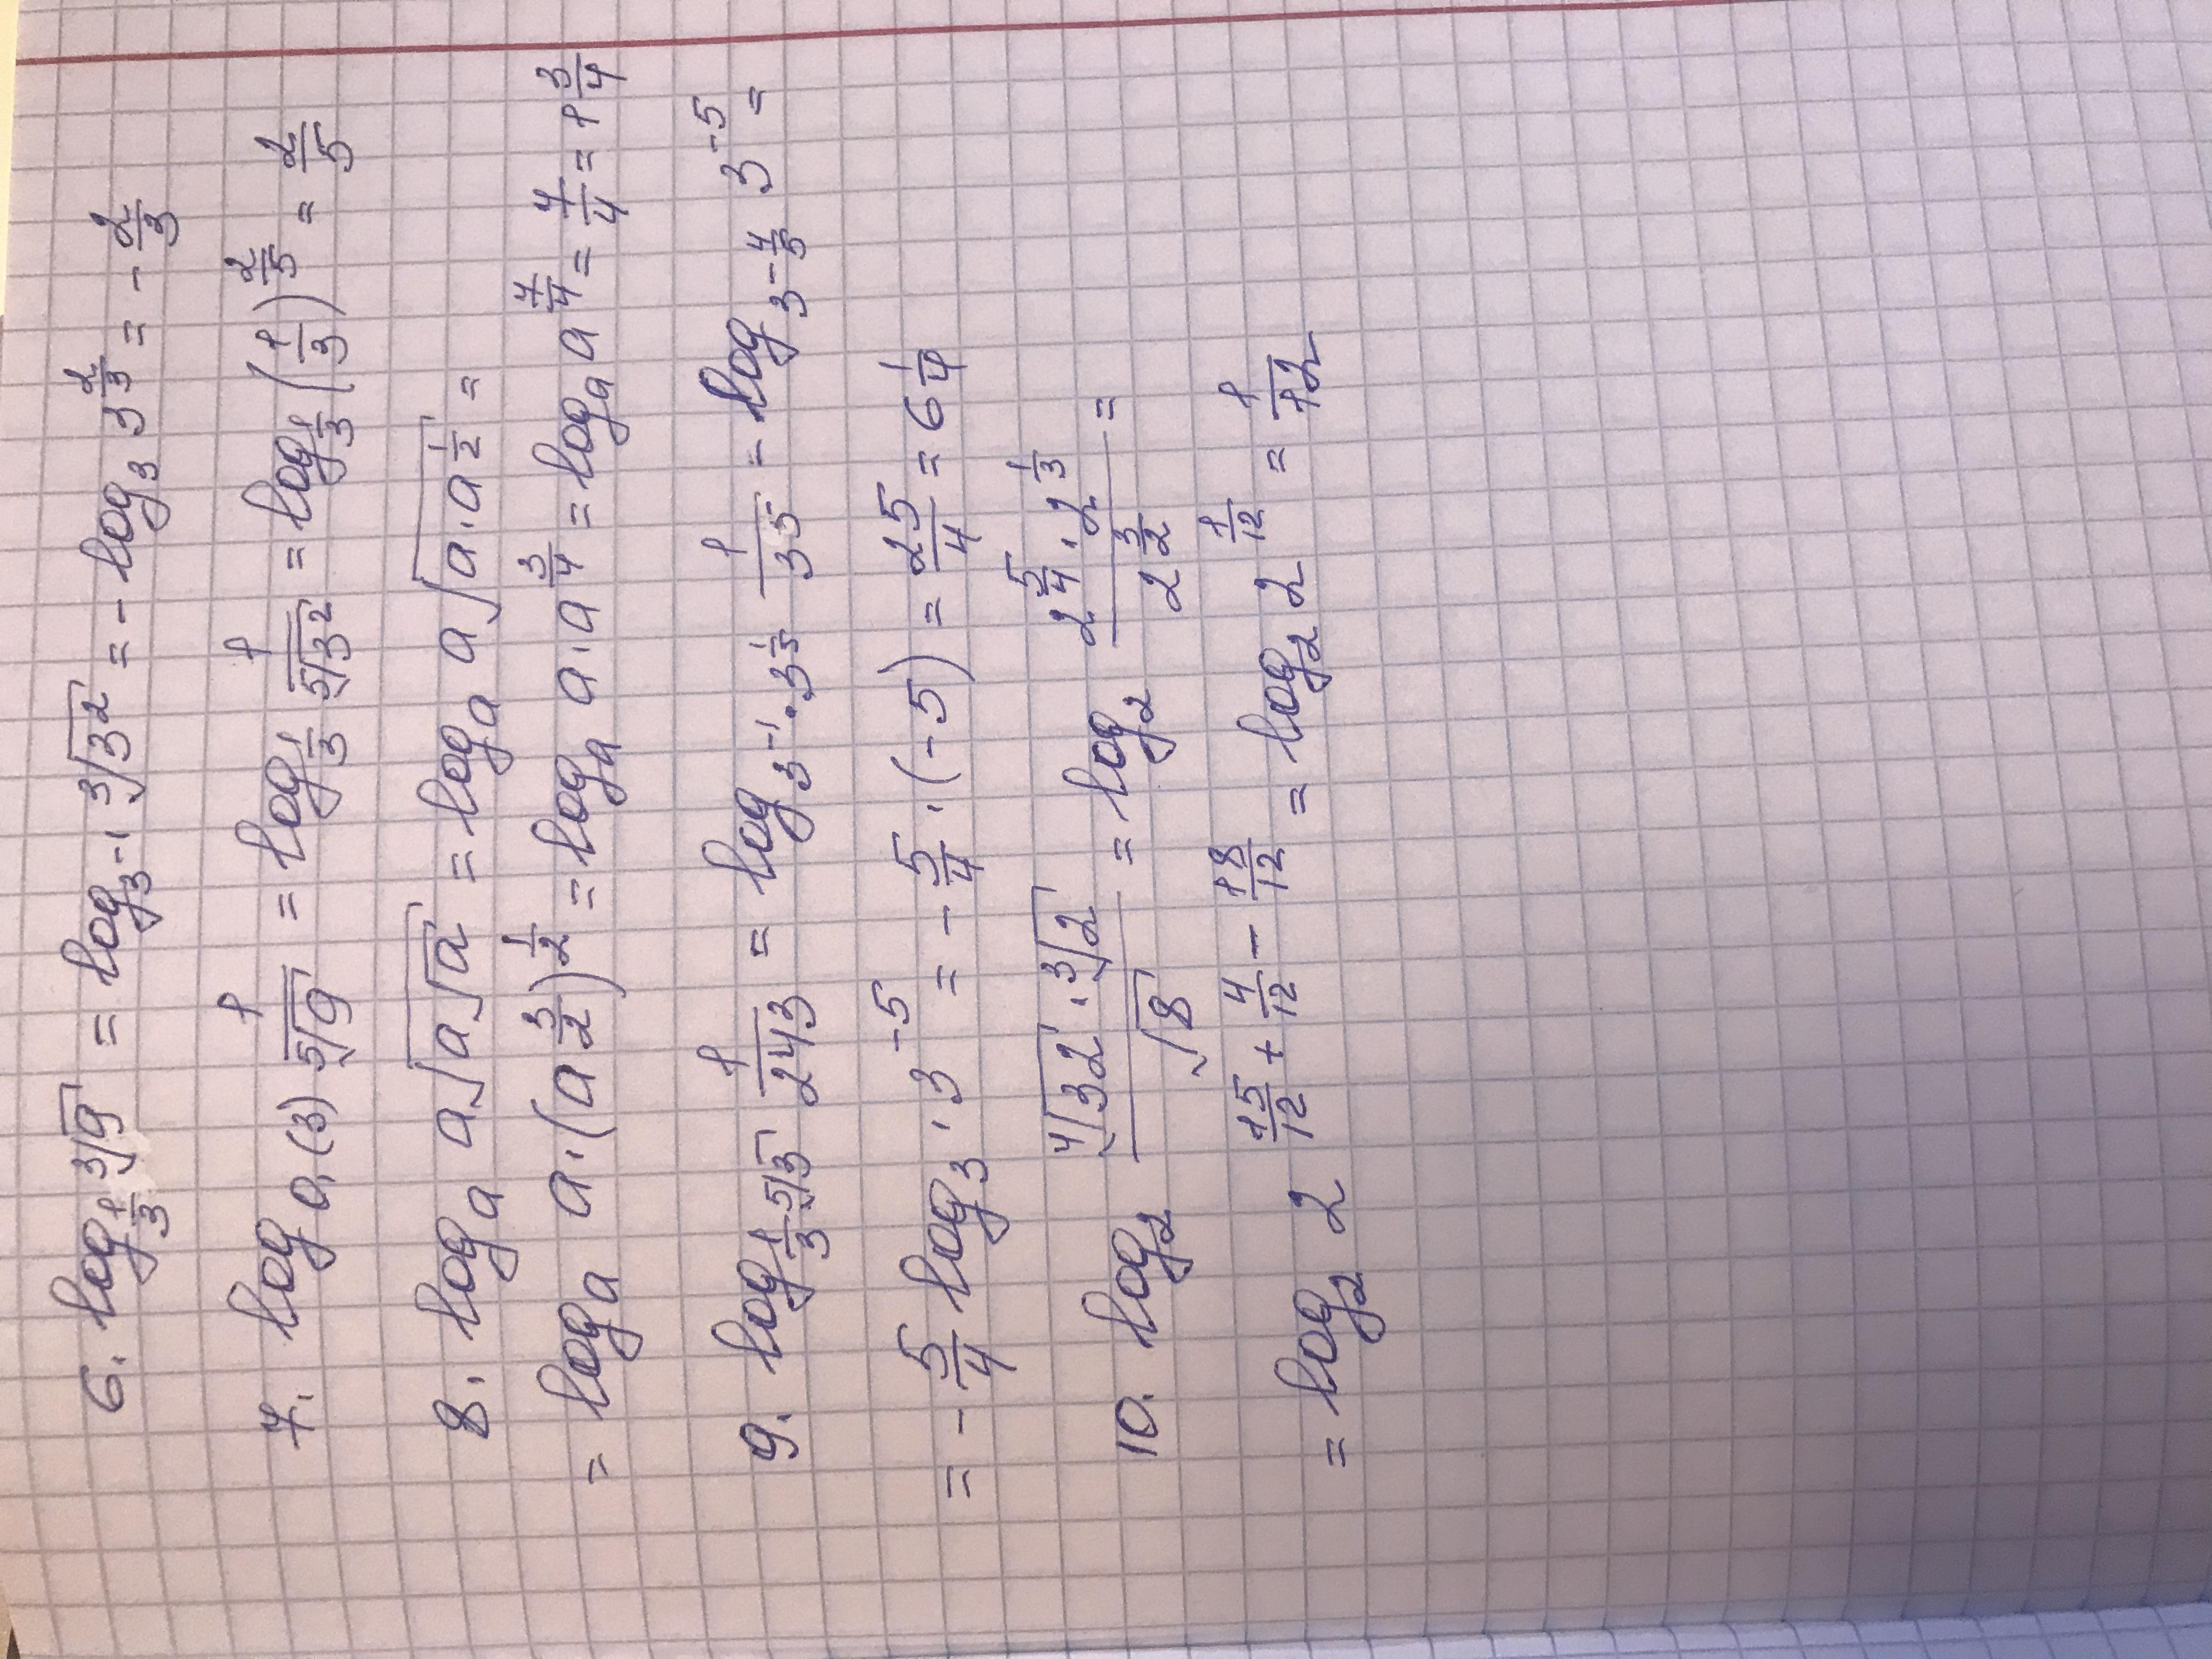 6. log_{1/3} ∛9 = log_{3^{-1}} ∛(3^2) = - log_3 3^{2/3} = - 2/3
7. log_{0,(3)} 1/⁵√9 = log_{1/3} 1/⁵√(3^2) = log_{1/3} (1/3)^{2/5} = 2/5
8. log_a a√(a√a) = log_a a√(a·a^{1/2}) =
= log_a a·(a^{3/2})^{1/2} = log_a a·a^{3/4} = log_a a^{7/4} = 7/4 = 1 3/4
9. log_{1/3 ⁵√3} 1/243 = log_{3^{-1}·3^{1/5}} 1/3^5 = log_{3^{-4/5}} 3^{-5} =
= - 5/4 log_3 · 3^{-5} = - 5/4 · (-5) = 25/4 = 6 1/4
10. log_2 (⁴√32 · ∛2)/√8 = log_2 (2^{5/4} · 2^{1/3})/2^{3/2} =
= log_2 2^{15/12 + 4/12 - 18/12} = log_2 2^{1/12} = 1/12